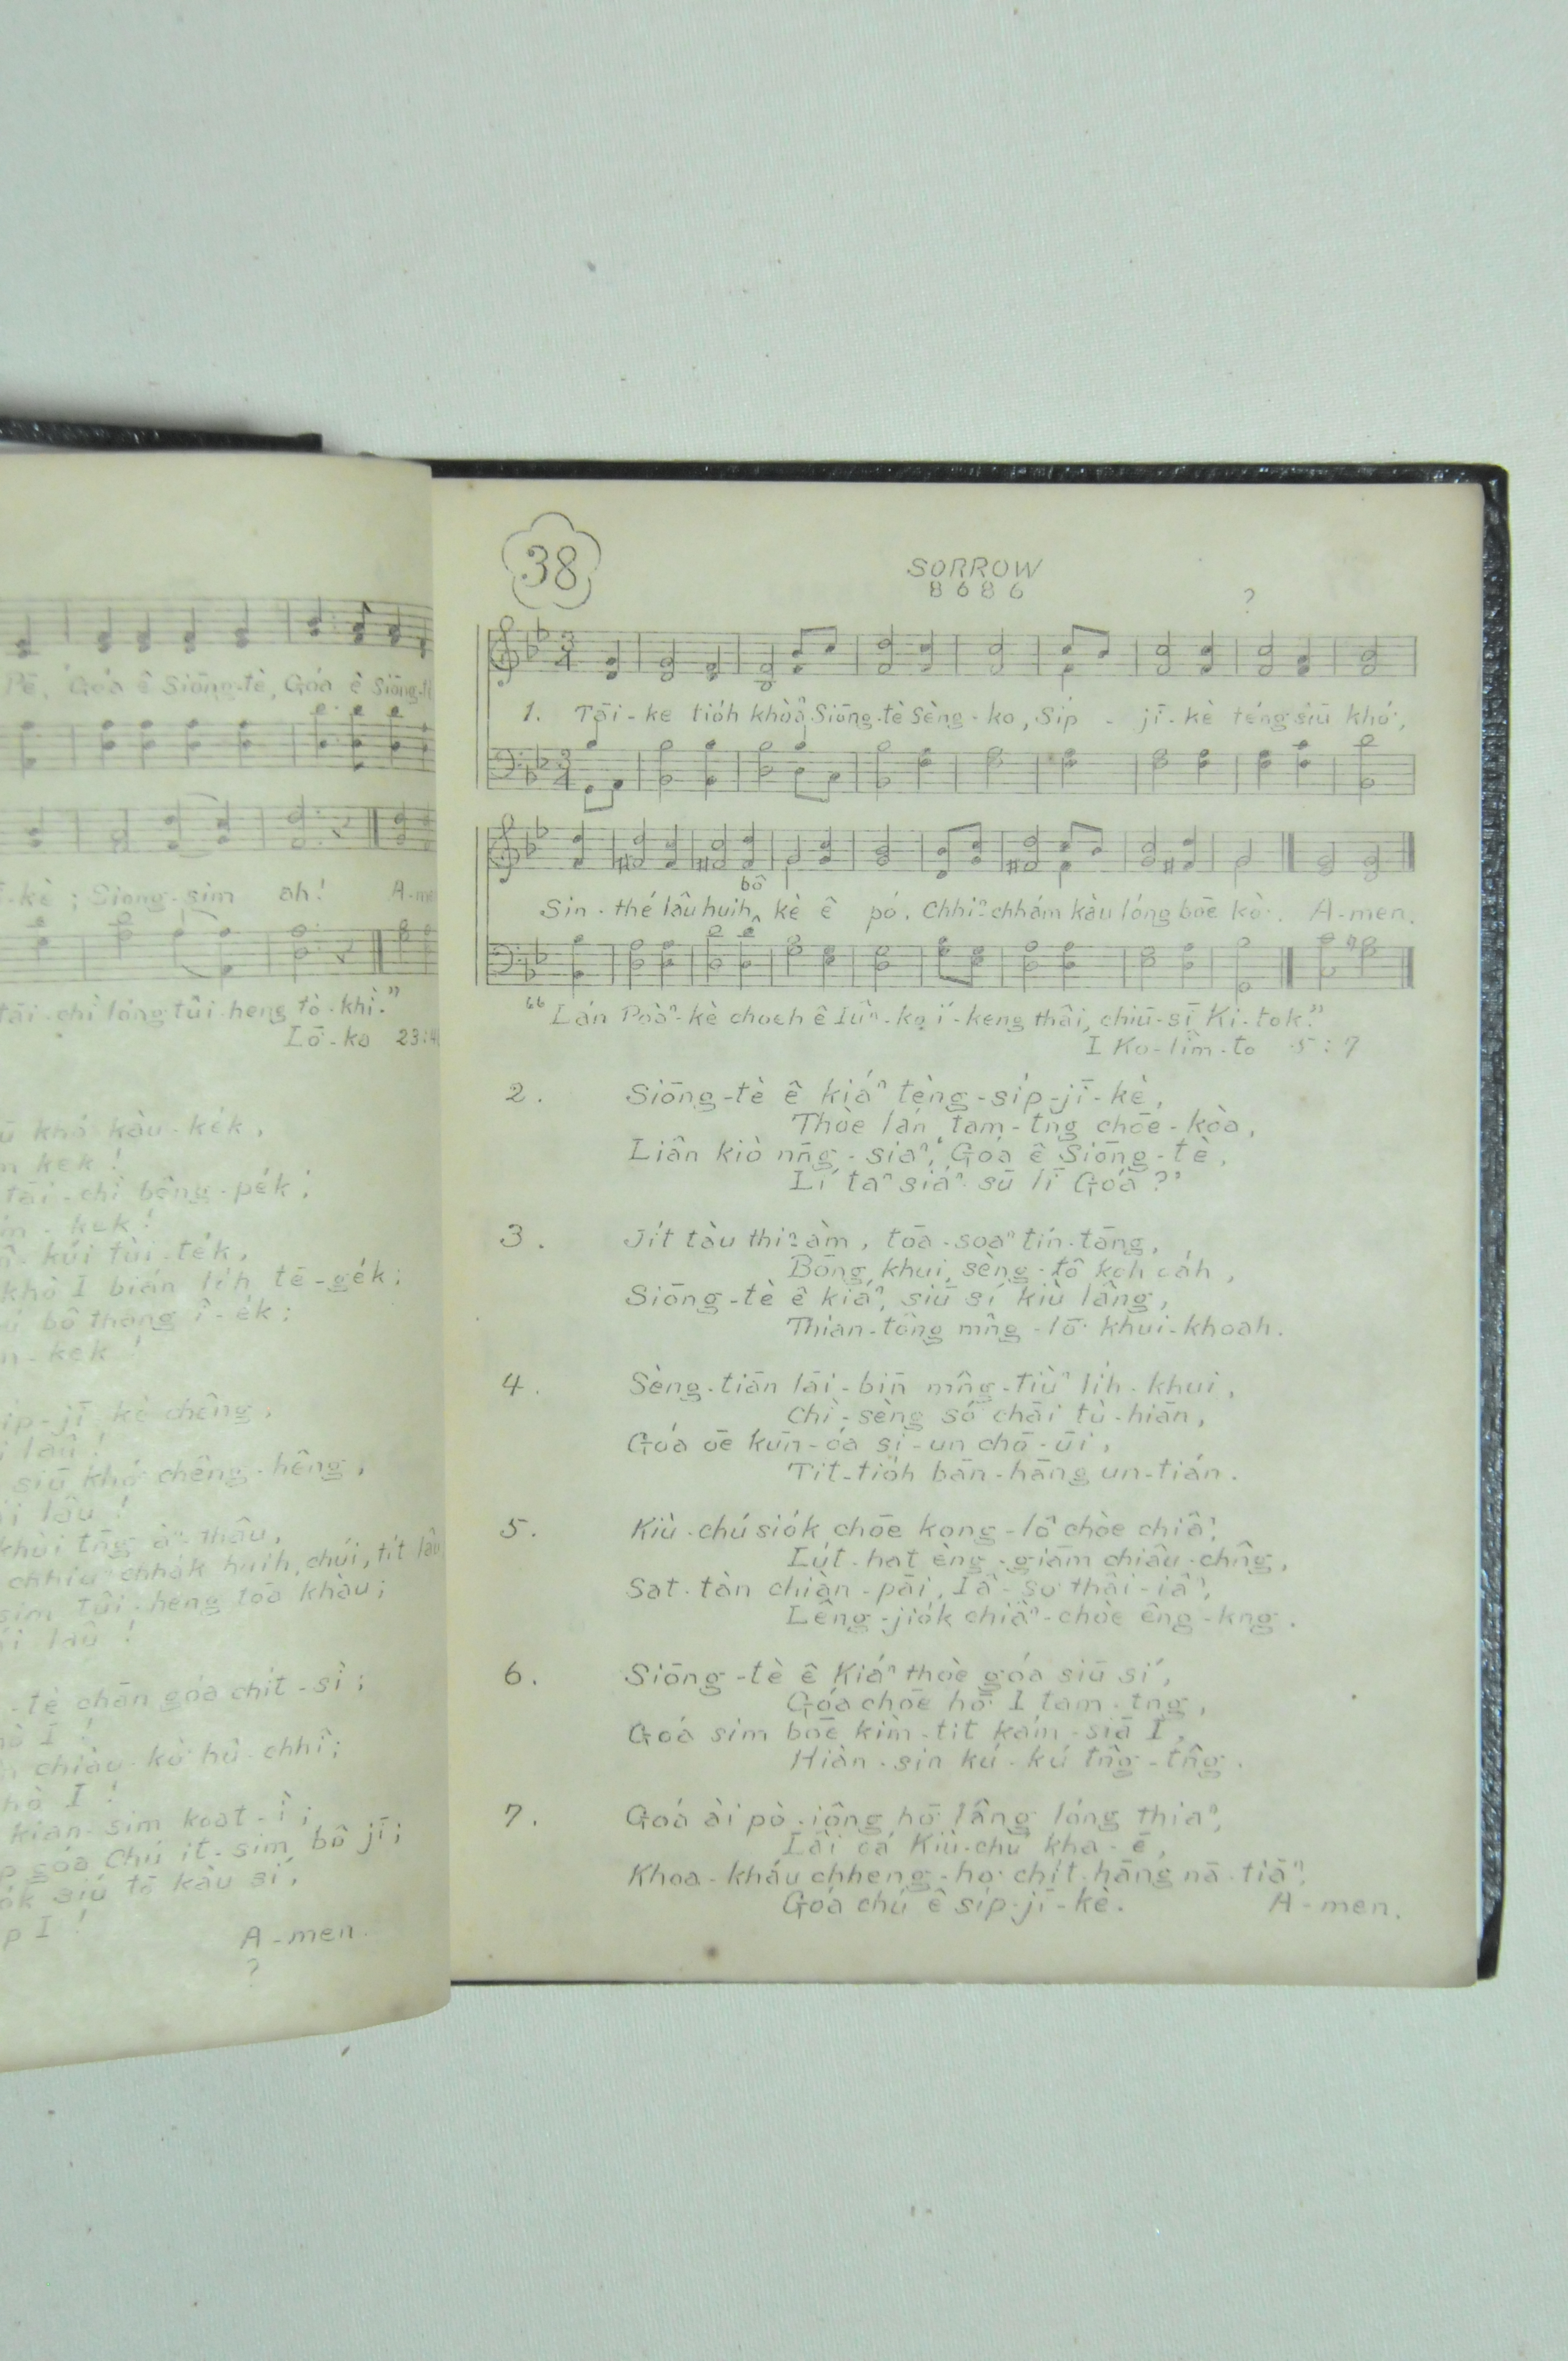 Pē, Góa ê Siōng-tè, Góa ê Siōng-t
-kè; Siong-sim ah! A-me
tāi-chì lóng tùi-heng tò-khì."
Lō-ka 23:4
ū khó kàu-ke̍k,
kek!
tāi-chì bêng-pe̍k;
kek!
kúi tùi-te̍k,
khò I bián li̍h tē-ge̍k;
bô thang ī-e̍k;
n-kek!
ip-jī kè chêng,
i laû!
siū khó chêng-hêng,
i lâu!
khùi tn̄g àⁿ-thâu,
chhiuⁿ chha̍k huih, chúi, ti̍t lâu
sim tùi-heng tōa khàu;
i laû!
-tè chān góa chi̍t-sì;
I!
chiàu-kò hû-chhî;
hō I!
kian-sim koat-ì;
góa Chú it-sim bô jī;
siū tō kàu sí,
p I!
A-men.
?
38
SORROW
8 6 8 6
?
1. Tāi-ke tio̍h khòaⁿ Siōng-tè Sèng-ko, Si̍p-jī-kè téng siū khó͘,
bô
Sin-thé lâu huih, kè ê pó, Chhiⁿ-chhám kàu lóng bōe kò͘. A-men.
"Lán Poàⁿ-kè choeh ê Iûⁿ-ko í-keng thâi, chiū-sī Ki-tok."
I Ko-lîm-to 5:7
2. Siōng-tè ê kiáⁿ tèng-si̍p-jī-kè,
Thòe lán tam-tng chōe-kòa,
Liân kiò nn̄g-siaⁿ, 'Góa ê Siōng-tè,
Lí taⁿ siáⁿ-sū lī Góa?'
3. Ji̍t tàu thiⁿ-àm, tōa-soaⁿ tín-tāng,
Bōng khui, sèng-tô͘ koh oa̍h,
Siōng-tè ê kiáⁿ, siū sí kiù lâng,
Thian-tông mn̂g-lō͘ khui-khoah.
4. Sèng-tiān lāi-bīn mn̂g-tiùⁿ li̍h-khui,
Chì-sèng só͘ chāi tù-hiān,
Góa ōe kūn-óa si-un chō-ūi,
Tit-tio̍h bān-hāng un-tián.
5. Kiù-chú sio̍k chōe kong-lô chòe chiâⁿ,
Lu̍t-hat èng-giām chiâu-chn̂g,
Sat-tàn chiàn-pāi, Iâ-so͘ thâi-iâⁿ,
Lêng-jio̍k chiâⁿ-chòe êng-kng.
6. Siōng-tè ê Kiáⁿ thòe góa siū sí,
Góa chōe hō͘ I tam-tng,
Goá sim bōe kìm-tit kám-siā I,
Hiàn-sin kú-kú tn̂g-tn̂g.
7. Goá ài pò-iông hō͘ lâng lóng thiaⁿ,
Lâi oá Kiù-chú kha-ē,
Khoa-kháu chheng-ho chi̍t-hāng nā-tiāⁿ,
Goá chú ê si̍p-jī-kè. A-men.